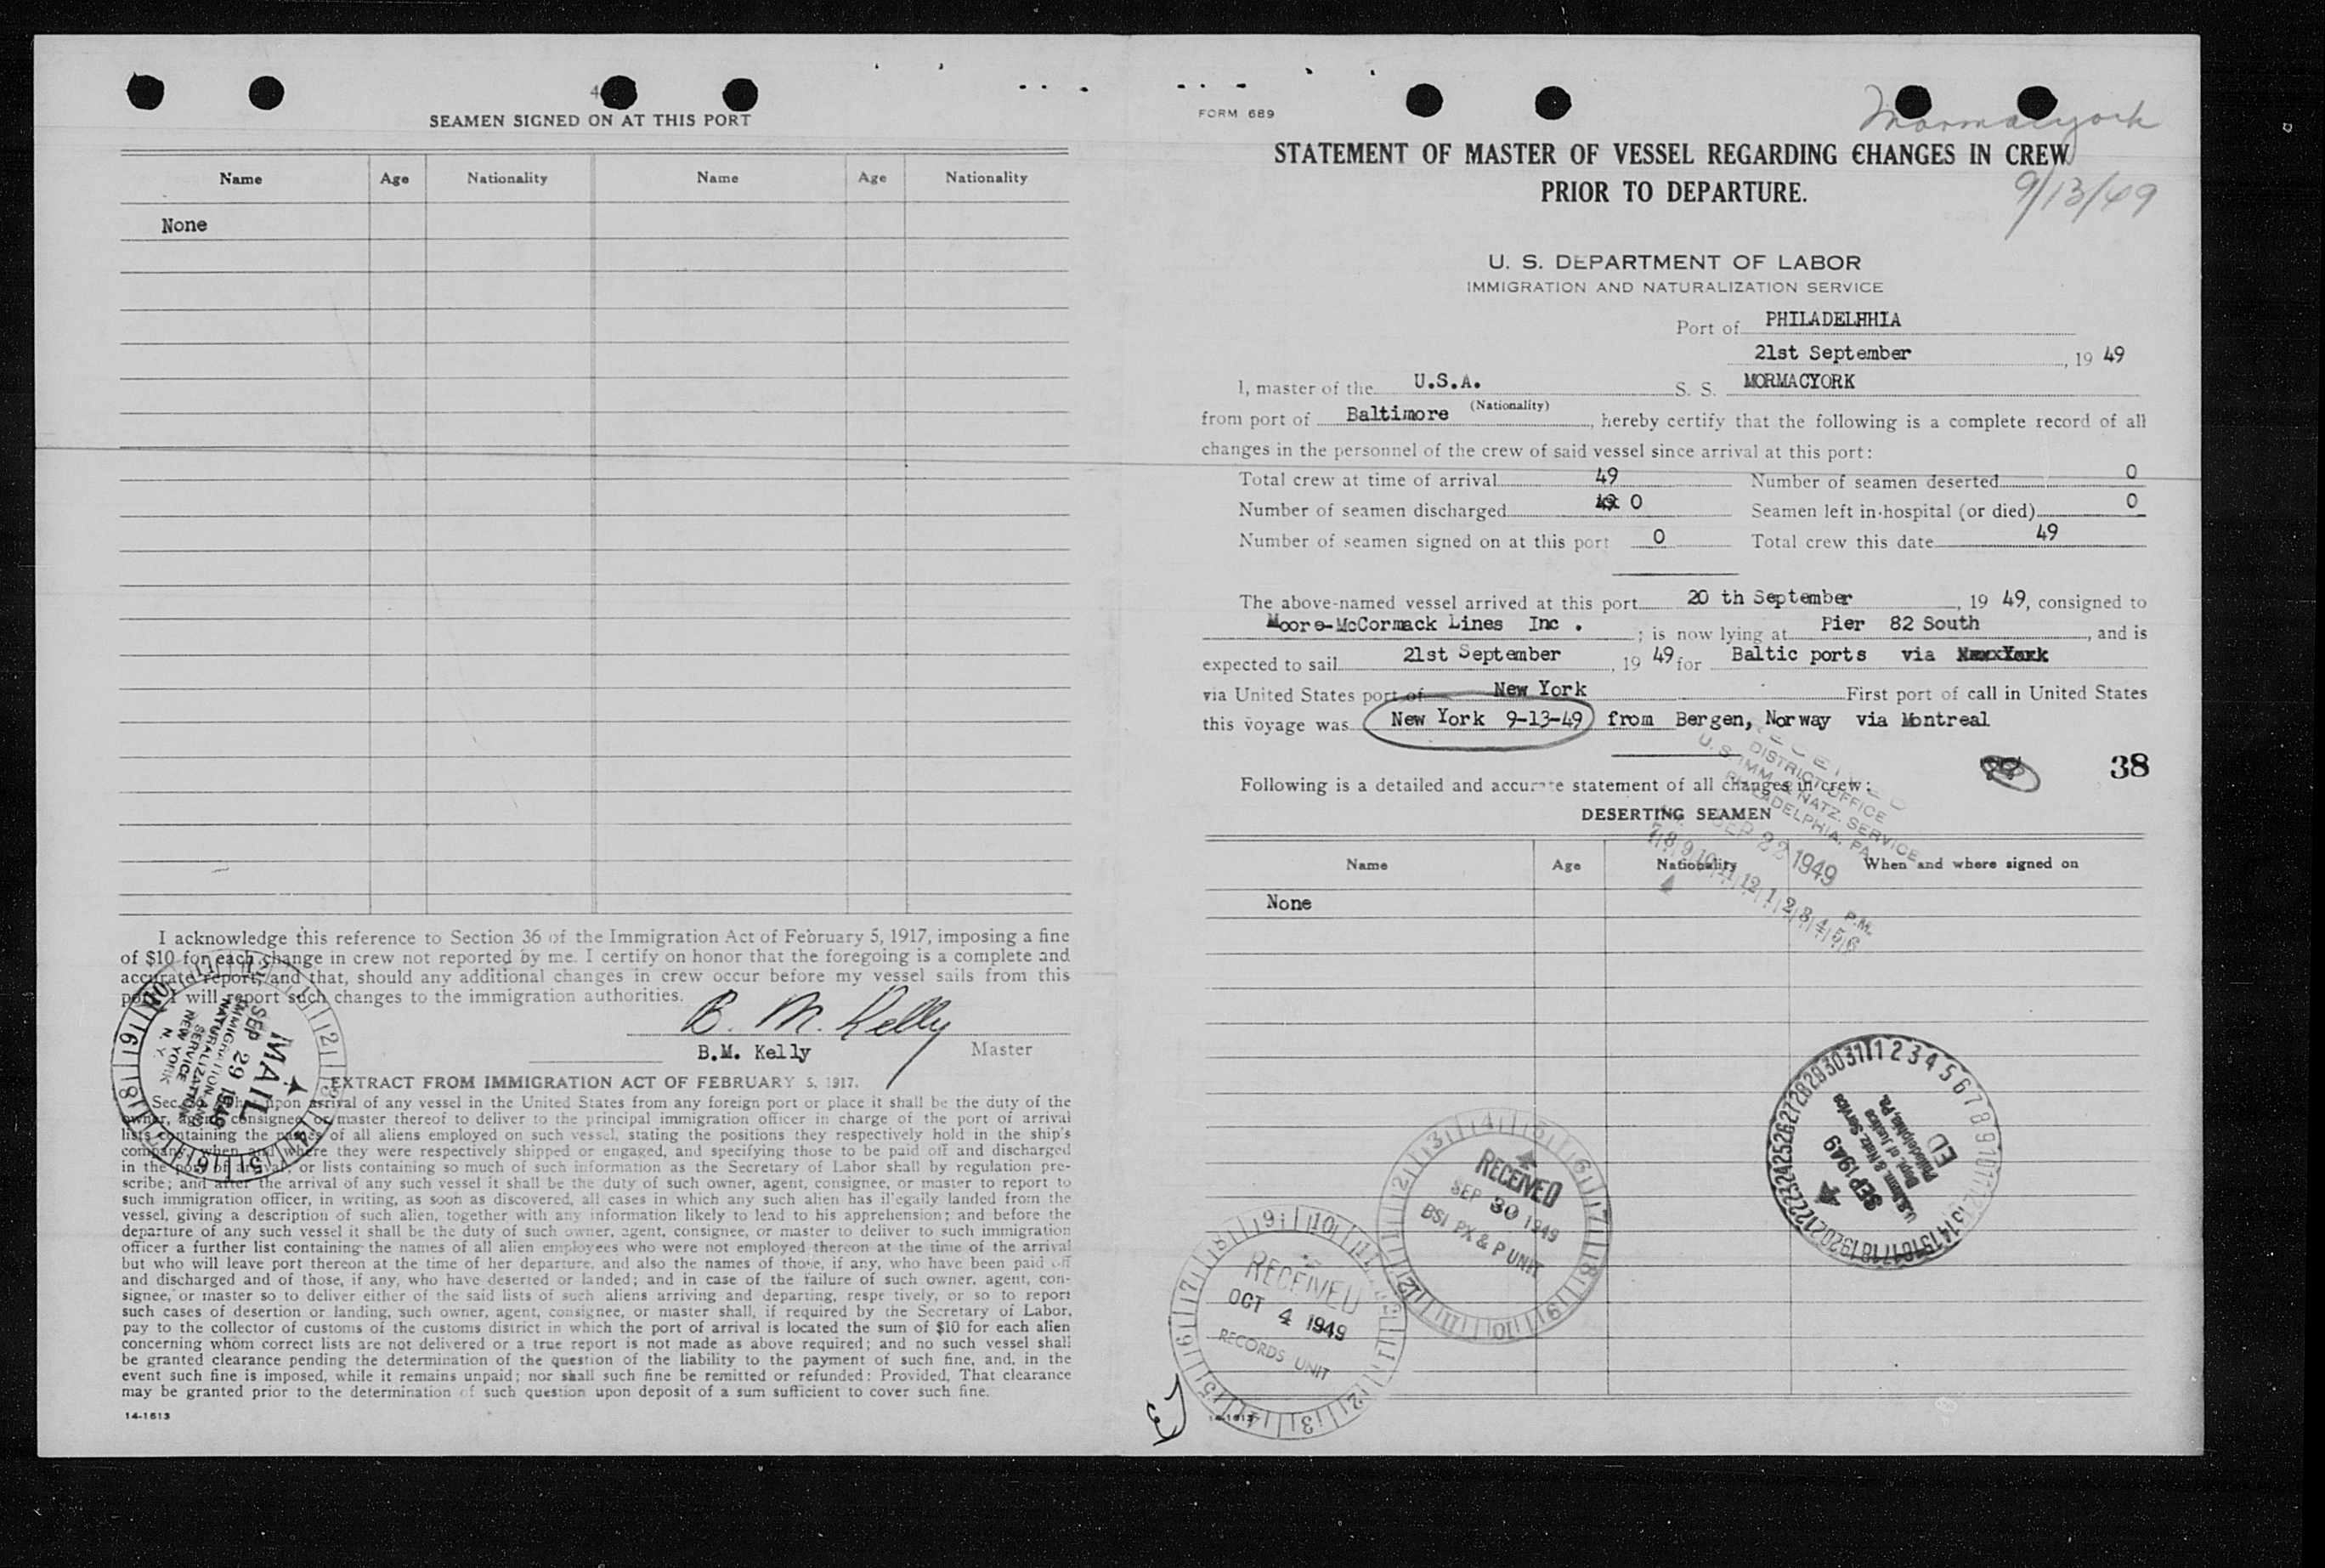 4
SEAMEN SIGNED ON AT THIS PORT
Name Age Nationality Name Age Nationality
None
I acknowledge this reference to Section 36 of the Immigration Act of February 5, 1917, imposing a fine
of $10 for each change in crew not reported by me. I certify on honor that the foregoing is a complete and
accurate report, and that, should any additional changes in crew occur before my vessel sails from this
port, I will report such changes to the immigration authorities.
B. M. Kelly
B.M. Kelly Master
MAIL
SEP 29 1949
IMMIGRATION AND
NATURALIZATION
SERVICE
NEW YORK
N. Y.
EXTRACT FROM IMMIGRATION ACT OF FEBRUARY 5, 1917.
Sec. upon arrival of any vessel in the United States from any foreign port or place it shall be the duty of the
owner, agent, consignee, or master thereof to deliver to the principal immigration officer in charge of the port of arrival
lists containing the names of all aliens employed on such vessel, stating the positions they respectively hold in the ship's
company, when and where they were respectively shipped or engaged, and specifying those to be paid off and discharged
in the port of arrival, or lists containing so much of such information as the Secretary of Labor shall by regulation pre-
scribe; and after the arrival of any such vessel it shall be the duty of such owner, agent, consignee, or master to report to
such immigration officer, in writing, as soon as discovered, all cases in which any such alien has illegally landed from the
vessel, giving a description of such alien, together with any information likely to lead to his apprehension; and before the
departure of any such vessel it shall be the duty of such owner, agent, consignee, or master to deliver to such immigration
officer a further list containing the names of all alien employees who were not employed thereon at the time of the arrival
but who will leave port thereon at the time of her departure, and also the names of those, if any, who have been paid off
and discharged and of those, if any, who have deserted or landed; and in case of the failure of such owner, agent, con-
signee, or master so to deliver either of the said lists of such aliens arriving and departing, respe tively, or so to report
such cases of desertion or landing, such owner, agent, consignee, or master shall, if required by the Secretary of Labor,
pay to the collector of customs of the customs district in which the port of arrival is located the sum of $10 for each alien
concerning whom correct lists are not delivered or a true report is not made as above required; and no such vessel shall
be granted clearance pending the determination of the question of the liability to the payment of such fine, and, in the
event such fine is imposed, while it remains unpaid; nor shall such fine be remitted or refunded: Provided, That clearance
may be granted prior to the determination of such question upon deposit of a sum sufficient to cover such fine.
14-1613
FORM 689
Mormacyork
STATEMENT OF MASTER OF VESSEL REGARDING CHANGES IN CREW
PRIOR TO DEPARTURE.
9/13/49
U. S. DEPARTMENT OF LABOR
IMMIGRATION AND NATURALIZATION SERVICE
Port of PHILADELHHIA
21st September, 19 49
I, master of the U.S.A. S. S. MORMACYORK
(Nationality)
from port of Baltimore, hereby certify that the following is a complete record of all
changes in the personnel of the crew of said vessel since arrival at this port:
Total crew at time of arrival 49 Number of seamen deserted 0
Number of seamen discharged 0 Seamen left in hospital (or died) 0
Number of seamen signed on at this port 0 Total crew this date 49
The above-named vessel arrived at this port 20 th September, 19 49, consigned to
Moore-McCormack Lines Inc . ; is now lying at Pier 82 South, and is
expected to sail 21st September, 19 49 for Baltic ports via New York
via United States port of New York First port of call in United States
this voyage was New York 9-13-49 from Bergen, Norway via Montreal
38
Following is a detailed and accurate statement of all changes in crew:
DESERTING SEAMEN
RECEIVED
DISTRICT OFFICE
U. S. IMM. & NATZ. SERVICE
PHILADELPHIA, PA.
SEP 22 1949
7 8 9 10 11 12 1 2 3 4 5 6 P.M.
Name Age Nationality When and where signed on
None
SEP 1949
U.S. Imm. & Natz Service
Dept. of Justice
Philadelphia, Pa.
ED
RECEIVED
SEP 30 1949
BSI PX & P UNIT
RECEIVED
OCT 4 1949
RECORDS UNIT
14-1613